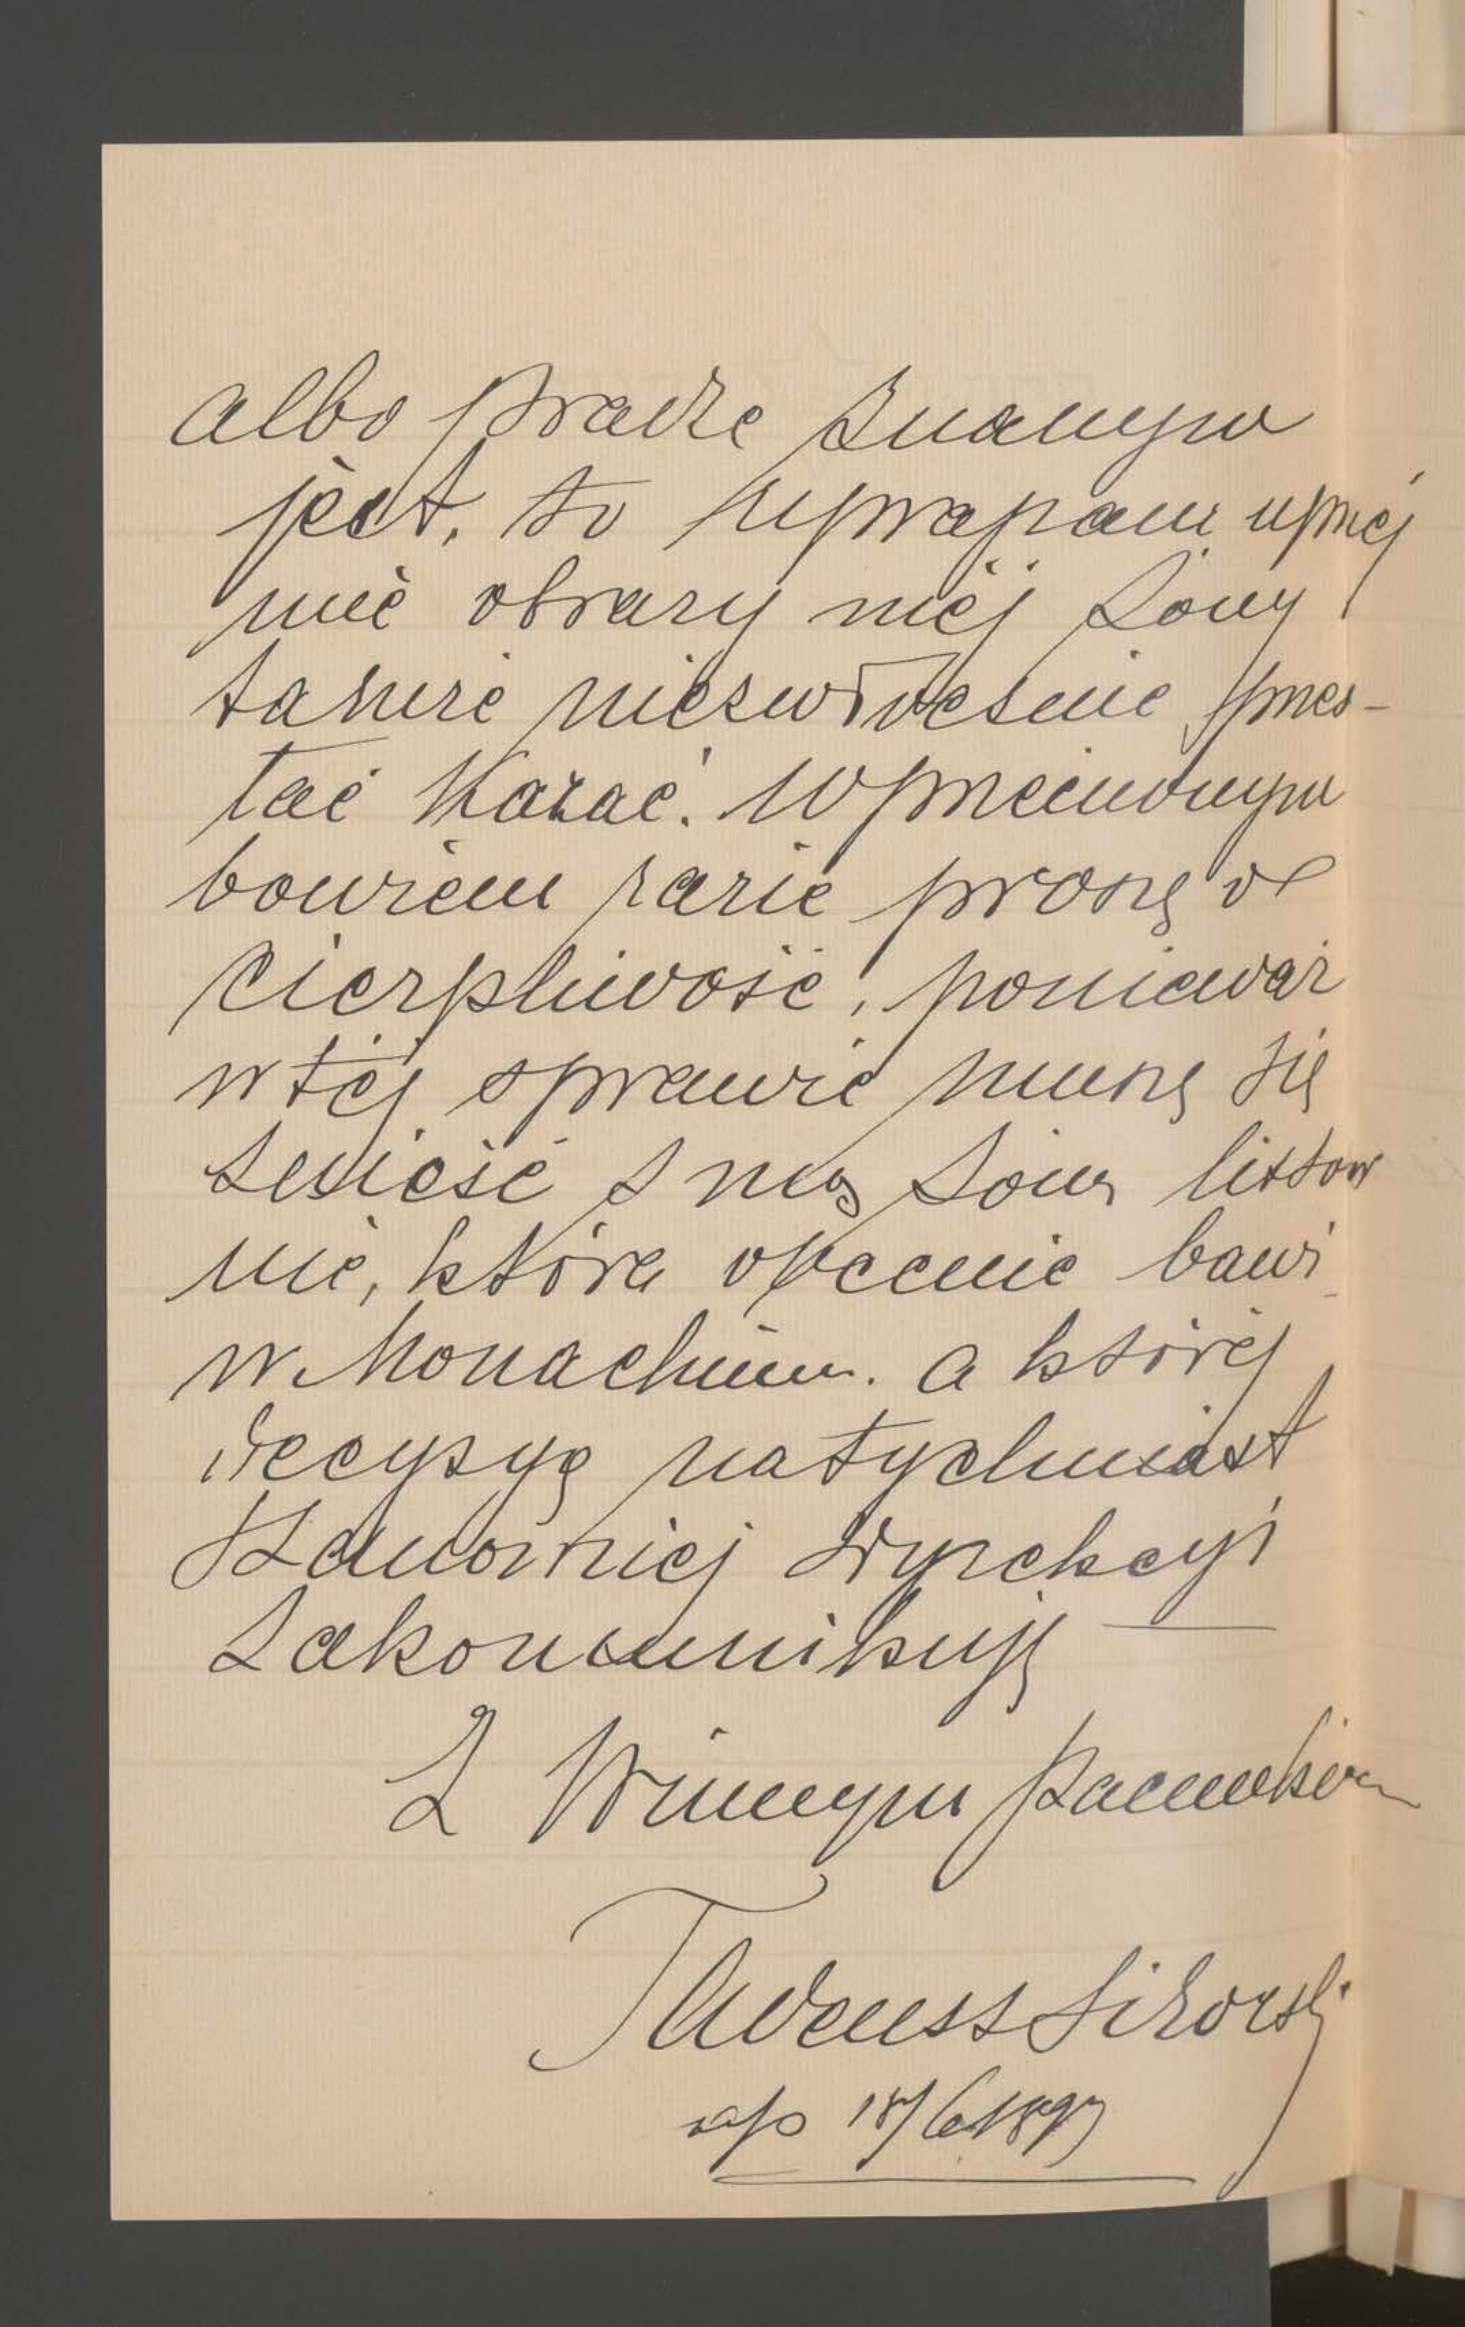 albo Pradze znanym
jest, to upraszam uprzej
mie obrazy méj żony
tamże niezwłocznie przes-
łać kazać. W przeciwnym
bowiem razie proszę o
cierpliwość, ponieważ
w téj sprawie muszę się
znieść z mą żoną listow
nie, która obecnie bawi
w Monachium. a któréj
decyzyę natychmiast
Szanownéj Dyrekcyi
zakomunikuję
Z Winnym szacunkiem
Tadeusz Sikorski
18/6 1897